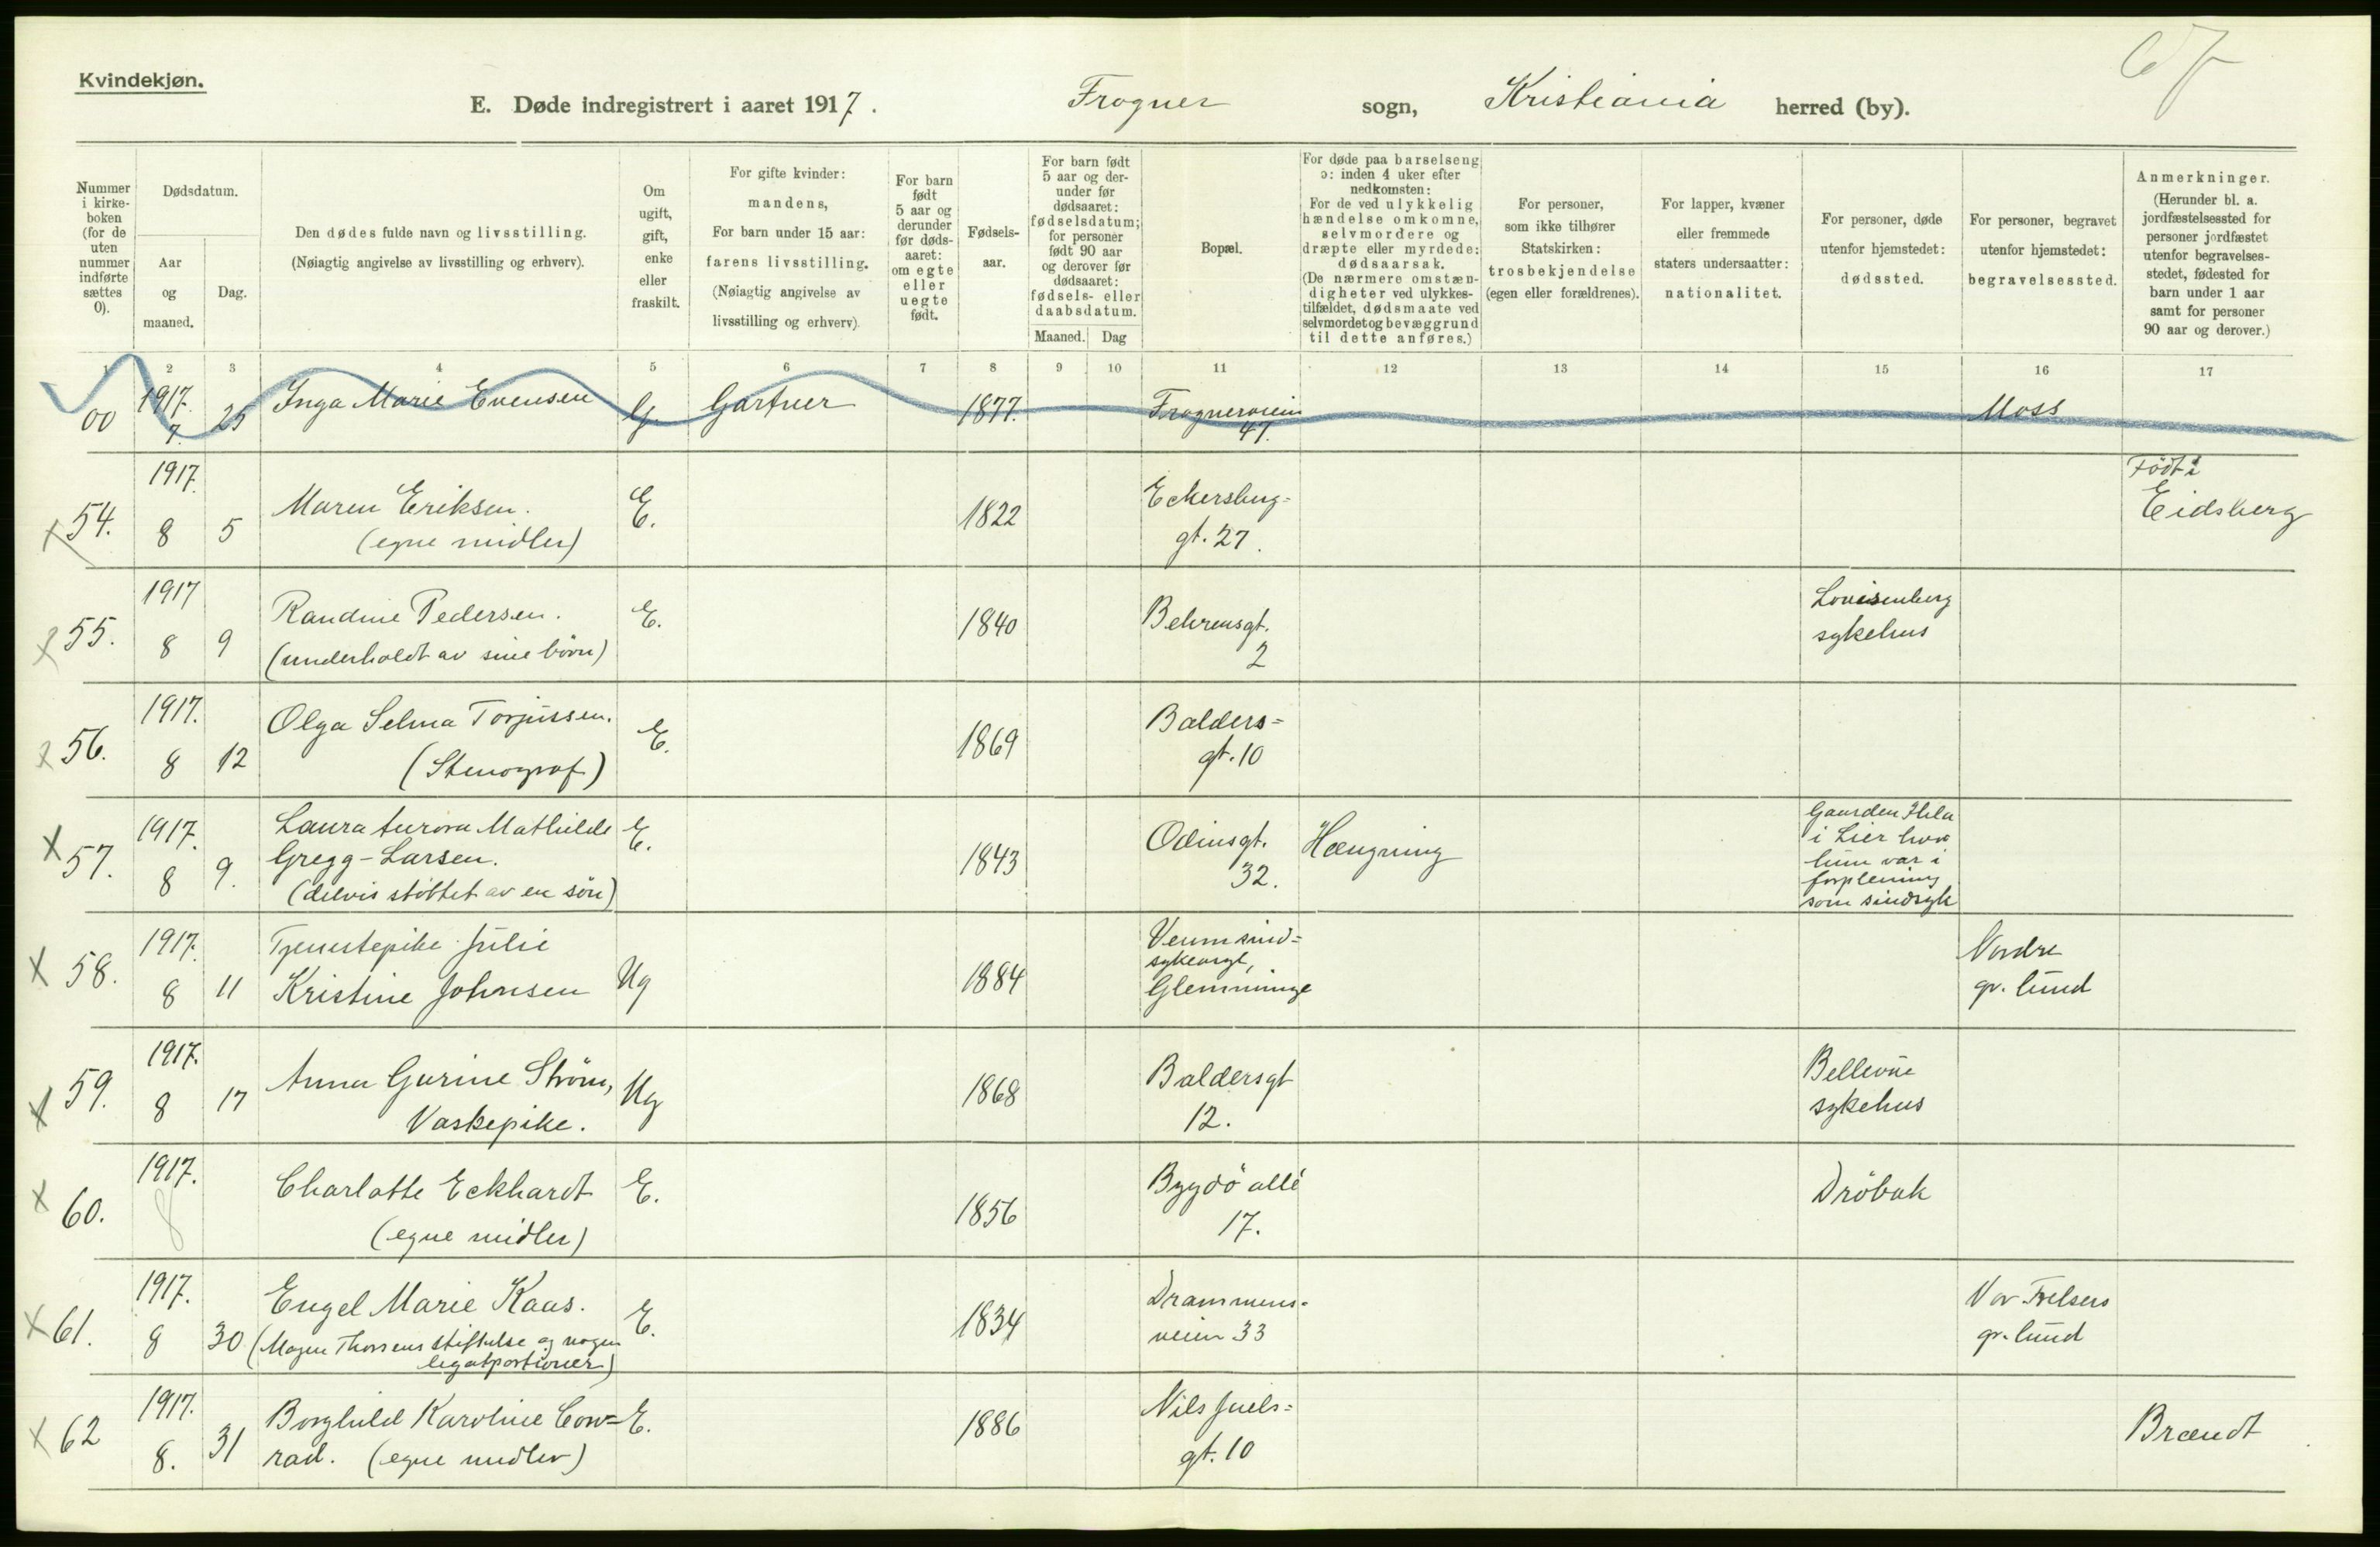 Kvindekjøn.
E. Døde indregistrert i aaret 1917. Frogner sogn, Kristiania herred (by).
67
Nummer i kirkeboken (for de uten nummer indførte sættes 0).
Dødsdatum.
Aar og maaned.
Dag.
Den dødes fulde navn og livsstilling.
(Nøiagtig angivelse av livsstilling og erhverv).
Om ugift, gift, enke eller fraskilt.
For gifte kvinder: mandens,
For barn under 15 aar: farens livsstilling.
(Nøiagtig angivelse av livsstilling og erhverv).
For barn født 5 aar og derunder før dødsaaret: om egte eller uegte født.
Fødselsaar.
For barn født 5 aar og derunder før dødsaaret: fødselsdatum; for personer født 90 aar og derover før dødsaaret: fødsels- eller daabsdatum.
Maaned. Dag
Bopæl.
For døde paa barselseng ɔ: inden 4 uker efter nedkomsten:
For de ved ulykkelig hændelse omkomne, selvmordere og dræpte eller myrdede: dødsaarsak.
(De nærmere omstændigheter ved ulykkestilfældet, dødsmaate ved selvmordet og bevæggrund til dette anføres.)
For personer, som ikke tilhører Statskirken: trosbekjendelse (egen eller forældrenes).
For lapper, kvæner eller fremmede staters undersaatter: nationalitet.
For personer, døde utenfor hjemstedet: dødssted.
For personer, begravet utenfor hjemstedet: begravelsessted.
Anmerkninger.
(Herunder bl. a. jordfæstelsessted for personer jordfæstet utenfor begravelsesstedet, fødested for barn under 1 aar samt for personer 90 aar og derover.)
1 2 3 4 5 6 7 8 9 10 11 12 13 14 15 16 17
00 1917. 7. 25 Inga Marie Evensen G Gartner 1877. Frognerveien 47. Moss
x 54. 1917. 8 5 Maren Eriksen. (egne midler) E. 1822 Eckersberg= gt. 27. Født i Eidsberg
x 55. 1917 8 9 Randine Pedersen. (underholdt av sine börn) E. 1840 Behrensgt. 2 Lovisenberg sykehus
x 56. 1917. 8 12 Olga Selma Torjussen. (Stenograf) E. 1869 Balders= gt. 10
x 57. 1917. 8 9. Laura Aurora Mathilde Gregg-Larsen. (delvis støttet av en sön) E. 1843 Odinsgt. 32. Hængning Gaarden Hila i Lier hvor hun var i forpleining som sindsyk
x 58. 1917. 8 11 Tjenestepike Julie Kristine Johnsen Ug 1884 Veum sind= sykeasyl, Glemminge Nordre gr. lund
x 59. 1917. 8 17 Anna Gurine Ström, Vaskepike. Ug 1868 Baldersgt 12. Bellevue sykehus
x 60. 1917. 8 Charlotte Eckhardt (egne midler) E. 1856 Bygdö allé 17. Dröbak
x 61. 1917. 8 30 Engel Marie Kaas. (Mogens Thorsens stiftelse og nogen legatportioner) E. 1834 Drammens= veien 33 Vor Frelsers gr. lund
x 62 1917. 8. 31 Borghild Karoline Con= rad. (egne midler) E. 1886 Nils Juels= gt. 10 Brændt